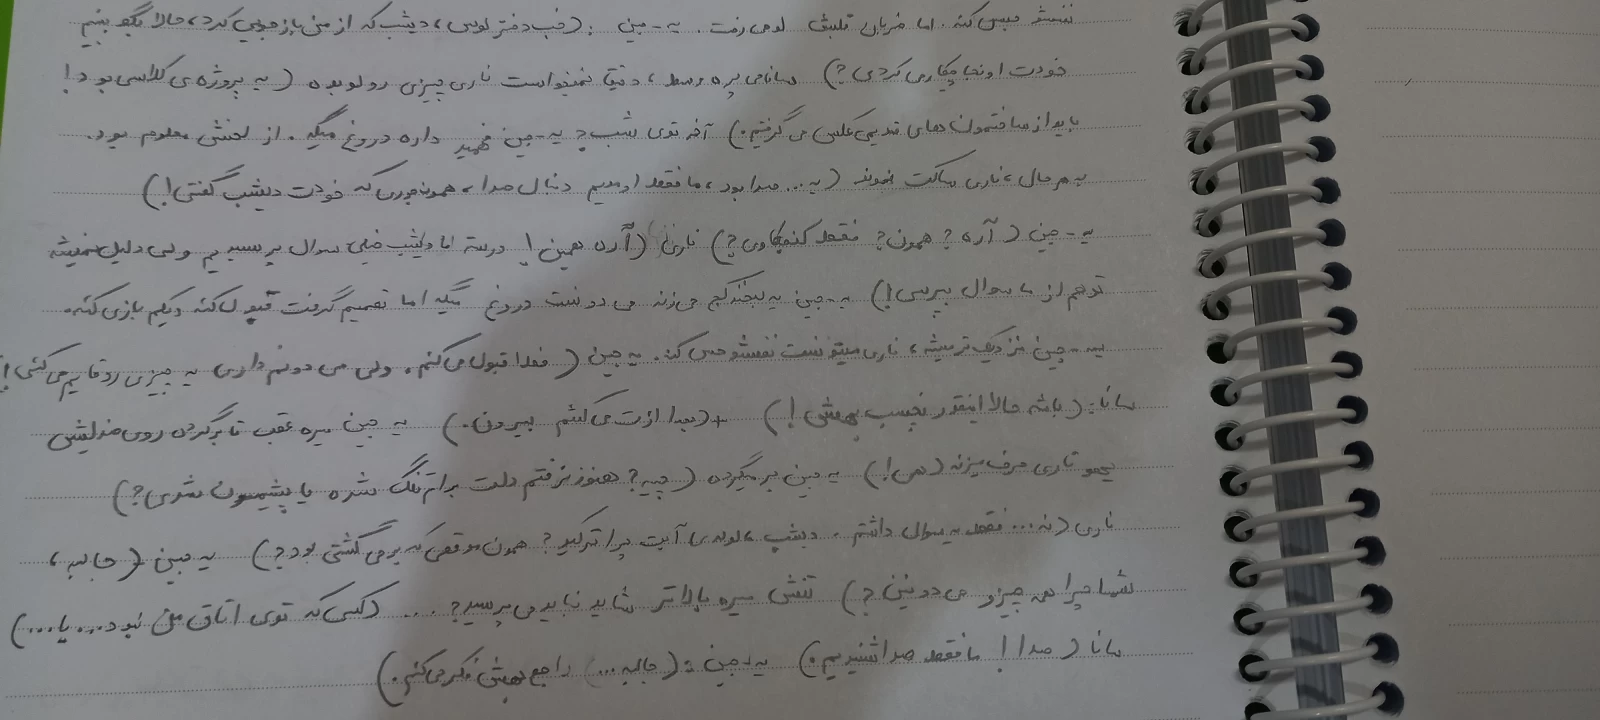 نفسشو حبس کنه. اما ضربان قلبش لو می رفت. یه-جین: (خب دختر لوس، دیشب که از من بازجویی کرد، حالا بگو ببینم
خودت اونجا چکاری کردی؟) سانا می پره وسط، دقیقا نمیخواست ناری چیزی رو لو بده (یه پروژه ی کلاسی بود!
باید از ساختمون های قدیمی عکس می گرفتیم.) آخه توی شب؟ یه-جین فهمید داره دروغ میگه. از لحنش معلوم بود.
به هر حال، ناری ساکت نموند (یه... صدا بود، ما فقط اومدیم دنبال صدا، همونجوری که خودت دیشب گفتی!)
یه-جین (آره؟ همون؟ فقط کنجکاوی؟) ناری (آره همین! درسته اما دیشب خیلی سوال پرسیدیم ولی دلیل نمیشه
تو هم از ما سوال بپرسی!) یه-جین یه لبخند کج می زنه می دونست دروغ میگه اما تصمیم گرفت قبول کنه و یکم بازی کنه.
یه-جین نزدیک تر میشه، ناری میتونست نفسشو حس کنه. یه جین (فعلا قبول می کنم. ولی می دونم داری یه چیزی رو قایم می کنی!)
سانا: (باشه حالا اینقدر نچسب بهش!) (بعدا ازت می کشم بیرون.) یه جین میره عقب تا برگرده روی صندلیش
یهو ناری حرف میزنه (هی!) یه جین بر میگرده (چیه؟ هنوز نرفتم دلت برام تنگ شده یا پشیمون شدی؟)
ناری (نه... فقط یه سوال داشتم. دیشب، لوله ی آب چرا ترکید؟ همون موقعی که برمی گشتی بود؟) یه جین (جالبه،
شما چرا همه چیزو می دونین؟) تنش میره بالاتر شاید نباید می پرسید؟ ... (کسی که توی اتاق من نبود... یا...)
سانا (صدا! ما فقط صدا شنیدیم.) یه-جین: (جالبه...) راجع بهش فکر می کنم.)